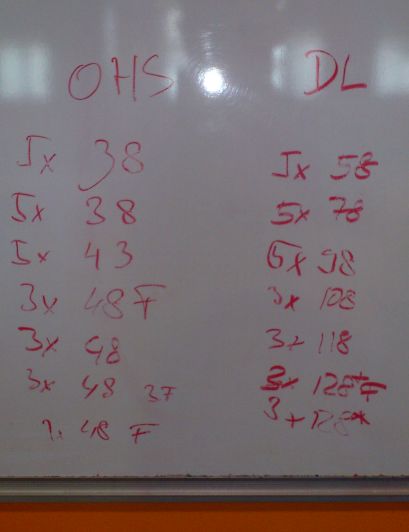 OHS DL
5x 38 5x 58
5x 38 5x 78
5x 43 5x 98
3x 48 F 3x 108
3x 48 3x 118
3x 48 3F 3x 128*F
1x 48 F 3x 128*